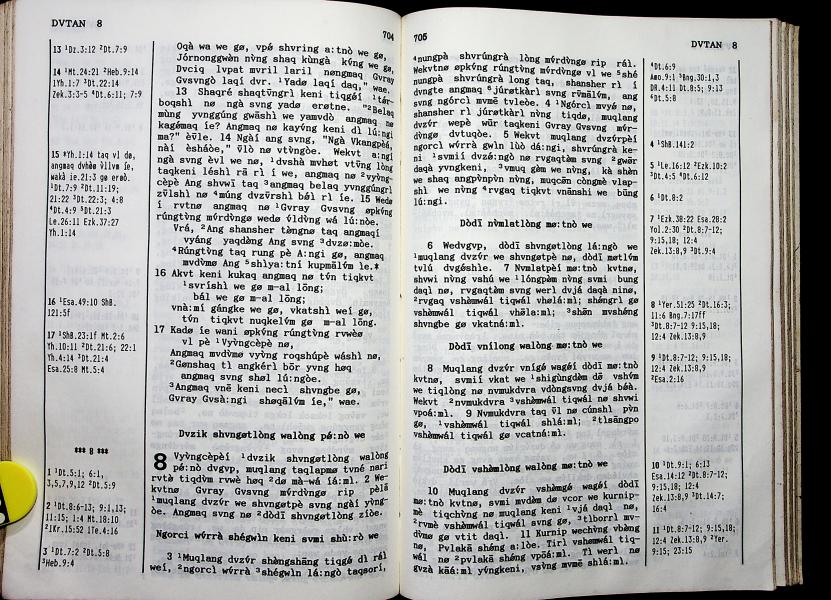 DVTAN 8
704
13 ¹Dz.3:12 ²Dt.7:9
14 ¹Mt.24:21 ²Heb.9:14
¹Yh.1:7 ³Dt.22:14
Zek.3:3-5 ⁴Dt.6:11; 7:9
15 *Yh.1:14 taq vl dø,
angmaq dvhøm vllvm íe,
wakà ie.21:3 gø ermø.
¹Dt.7:9 ²Dt.11:19;
21:22 ³Dt.22:3; 4:8
⁴Dt.4:9 ⁵Dt.21:3
Le.26:11 Ezk.37:27
Yh.1:14
16 ¹Esa.49:10 ShB.
121:5f
17 ¹ShB.23:1f Mt.2:6
Yh.10:11 ²Dt.21:6; 22:1
Yh.4:14 ³Dt.21:4
Esa.25:8 Mt.5:4
*** 8 ***
1 ¹Dt.5:1; 6:1,
3,5,7,9,12 ²Dt.5:9
2 ¹Dt.8:6-13; 9:1,13;
11:15; 1:4 Mt.18:10
²1Kr.15:52 1Te.4:16
3 ¹Dt.7:2 ²Dt.5:8
³Heb.9:4
Oqà wa we gø, vpǿ shvring a:tnò we gø,
Jórnonggwèn nv̀ng shaq kùngà kv́ng we gø,
Dvciq lvpat mvril laril nøngmaq Gvray
Gvsvngò laqí dvr. ¹Yadø laqí daq," wae.
13 Shaqré shaqtv̄ngrì keni tiqgéí ¹tǿr-
boqshì nø ngà svng yadø erøtne. "²Belaq
mùng yvnggúng gwāshì we yamvdò angmaq nø
kagǿmaq íe? Angmaq nø kayv́ng keni dì lú:ngì
ma?" èví:e. 14 Ngàí ang svng, "Ngà Vkangpèí,
nàí èshàòe," Vlò nø vtv̀ngòe. Wekvt a:ngì
ngà svng èvl we nø, ¹dvshà mvhøt vtv̄ng lòng
taqkeni léshì rā rì í we, angmaq nø ²vyv̀ng-
cèpè Ang shvwī taq ³angmaq belaq yvnggúngrì
zv̄lshì nø ⁴múng dvzv̄rshì bál rì íe. 15 Wedø
í rvtnø angmaq nø ¹Gvray Gvsvng øpkv́ng
rúngtv̀ng mv́rdv̀ngø wedø v́ldv̀ng wá lú:nòe.
Vrá, ²Ang shansher tèngnø taq angmaqí
vyáng yaqdèng Ang svng ³dvzø:mòe.
⁴Rúngtv̀ng taq rung pè A:ngì gø, angmaq
mvdv̀mø Ang ⁵shlya:tní kupmālv́m íe.*
16 Akvt keni kukaq angmaq nø tv́n tiqkvt
¹svríshì we gø m-al lōng;
bál we gø m-al lōng;
vnà:mì gángke we gø, vkatshì weí gø,
tv́n tiqkvt nuqkelv́m gø m-al lōng.
17 Kadø íe wanì øpkv́ng rúngtv̀ng rvwèø
vl pè ¹Vyv̀ngcèpè nø,
Angmaq mvdv̀mø vyv̀ng roqshúpè wáshì nø,
²Gønshaq tì angkérì bōr yvng høq
angmaq svng shøl lú:ngòe.
³Angmaq vnē keni necl shvngbe gø,
Gvray Gvsà:ngì shøqālv́m íe," wae.
Dvzik shvngøtlòng walòng pǿ:nò we
8 Vyv̀ngcèpèí ¹dvzik shvngøtlòng walòng
pǿ:nò dvgvp, muqlang taqlapmø tvné nari
rvtè tiqdv̀m rvwè høq ²dø mà-wá íá:mì. 2 We-
kvtnø Gvray Gvsvng mv́rdv̀ngø rip pèlā
¹muqlang dvzv́r we shvngøtpè svng ngàí yv̀ng-
òe. Angmaq svng nø ²dòdī shvngøtlòng zíòe.
Ngorcì wv́rrà shégwìn keni svmì shù:rò we
3 ¹Muqlang dvzv́r shèngshāng tiqgǿ dì rál
weí, ²ngorcì wv́rrà ³shégwìn lá:ngò taqsorí,
705
DVTAN 8
⁴nungpà shvrúngrà lòng mv́rdv̀ngø rip rál.
Wekvtnø øpkv́ng rúngtv̀ng mv́rdv̀ngø vl we ⁵shé
nungpà shvrúngrà long taq, shansher rì í
dvngte angmaq ⁶júrøtkàrì svng rv̄mālv́m, ang
svng ngórcì mvmē tvleòe. 4 ¹Ngórcì mvyé nø,
shansher rì júrøtkàrì nv̀ng tiqdø, muqlang
dvzv́r wepè wūr taqkeni Gvray Gvsvng mv́r-
dv̀ngø dvtuqòe. 5 Wekvt muqlang dvzv́rpèí
ngorcì wv́rrà gwìn lùò dá:ngì, shvrúngrà ke-
ni ¹svmíí dvzǿ:ngò nø rvgaqtǿm svng ²gwør
daqà yvngkeni, ³vmuq gǿm we nv̀ng, kà shèn
we shaq angpv̀npv̀n nv̀ng, muqcǿn còngmè vlap-
shì we nv̀ng ⁴rvgaq tiqkvt vnānshì we būng
lú:ngì.
Dòdī nv̀mlatlòng mø:tnò we
6 Wedvgvp, dòdī shvngøtlòng lá:ngò we
¹muqlang dvzv́r we shvngøtpè nø, dòdī møtlv́m
tvlú dvgéshìe. 7 Nv̀mlatpèí mø:tnò kvtnø,
shvwì nv̀ng vshú we ¹lóngpǿm nv̀ng svmì bung
daqì nø, rvgaqtǿm svng werì dvjá daqà nìnø,
²rvgaq vshèmwál tiqwál vhølá:mì; shéngrì gø
vshèmwál tiqwál vhøla:mì; ³shǿn mvshéng
shvngbe gø vkatná:mì.
Dòdī vnílong walòng mø:tnò we
8 Muqlang dvzv́r vnígǿ wagéí dòdī mø:tnò
kvtnø, svmíí vkat we ¹shigùngdǿm dē vshv́m
we tiqlòng nø nvmukdvra vdòngsvng dvjá bǿà.
Wekvt ²nvmukdvra ³vshèmwál tiqwál nø shvwì
vpoá:mì. 9 Nvmukdvra taq v̄l nø cúnshì pv̀n
gø, ¹vshèmwál tiqwál shìá:mì; ²tlsāngpo
vshèmwál tiqwál gø vcatná:mì.
Dòdī vshèmlòng walòng mø:tnò we
10 Muqlang dvzv́r vshèmgǿ wagéí dòdī
mø:tnò kvtnø, svmì mvdǿm dø vcor we kurnip-
mè tiqchv̀ng nø muqlang keni ¹vjá daqì nø,
²rvmè vshèmwál tiqwál svng gø, ³tìborrì mv-
dv̀mø gø vtit daqì. 11 Kurnip wechv̀ng vbèng
nø, Pvlakā shéng a:lòe. Tirì vshømwál tiq-
wál nø ²pvlakā shéng vpōá:mì. Tì werì nø
gvzà kāá:mì yv́ngkeni, vsv̀ng mvmē shìá:mì.
⁴Dt.6:9
Amo.9:1 ⁵Bng.30:1,3
DR.4:11 Dt.8:5; 9:13
⁶Dt.5:8
4 ¹ShB.141:2
5 ¹Le.16:12 ²Ezk.10:2
³Dt.4:5 ⁴Dt.6:12
6 ¹Dt.8:2
7 ¹Ezk.38:22 Esa.28:2
Yol.2:30 ²Dt.8:7-12;
9:15,18; 12:4
Zek.13:8,9 ³Dt.9:4
8 ¹Yer.51:25 ²Dt.16:3;
11:6 Bng.7:17ff
³Dt.8:7-12 9:15,18;
12:4 Zek.13:8,9
9 ¹Dt.8:7-12; 9:15,18;
12:4 Zek.13:8,9
²Esa.2:16
10 ¹Dt.9:1; 6:13
Esa.14:12 ²Dt.8:7-12;
9:15,18; 12:4
Zek.13:8,9 ³Dt.14:7;
16:4
11 ¹Dt.8:7-12; 9:15,18;
12:4 Zek.13:8,9 ²Yer.
9:15; 23:15